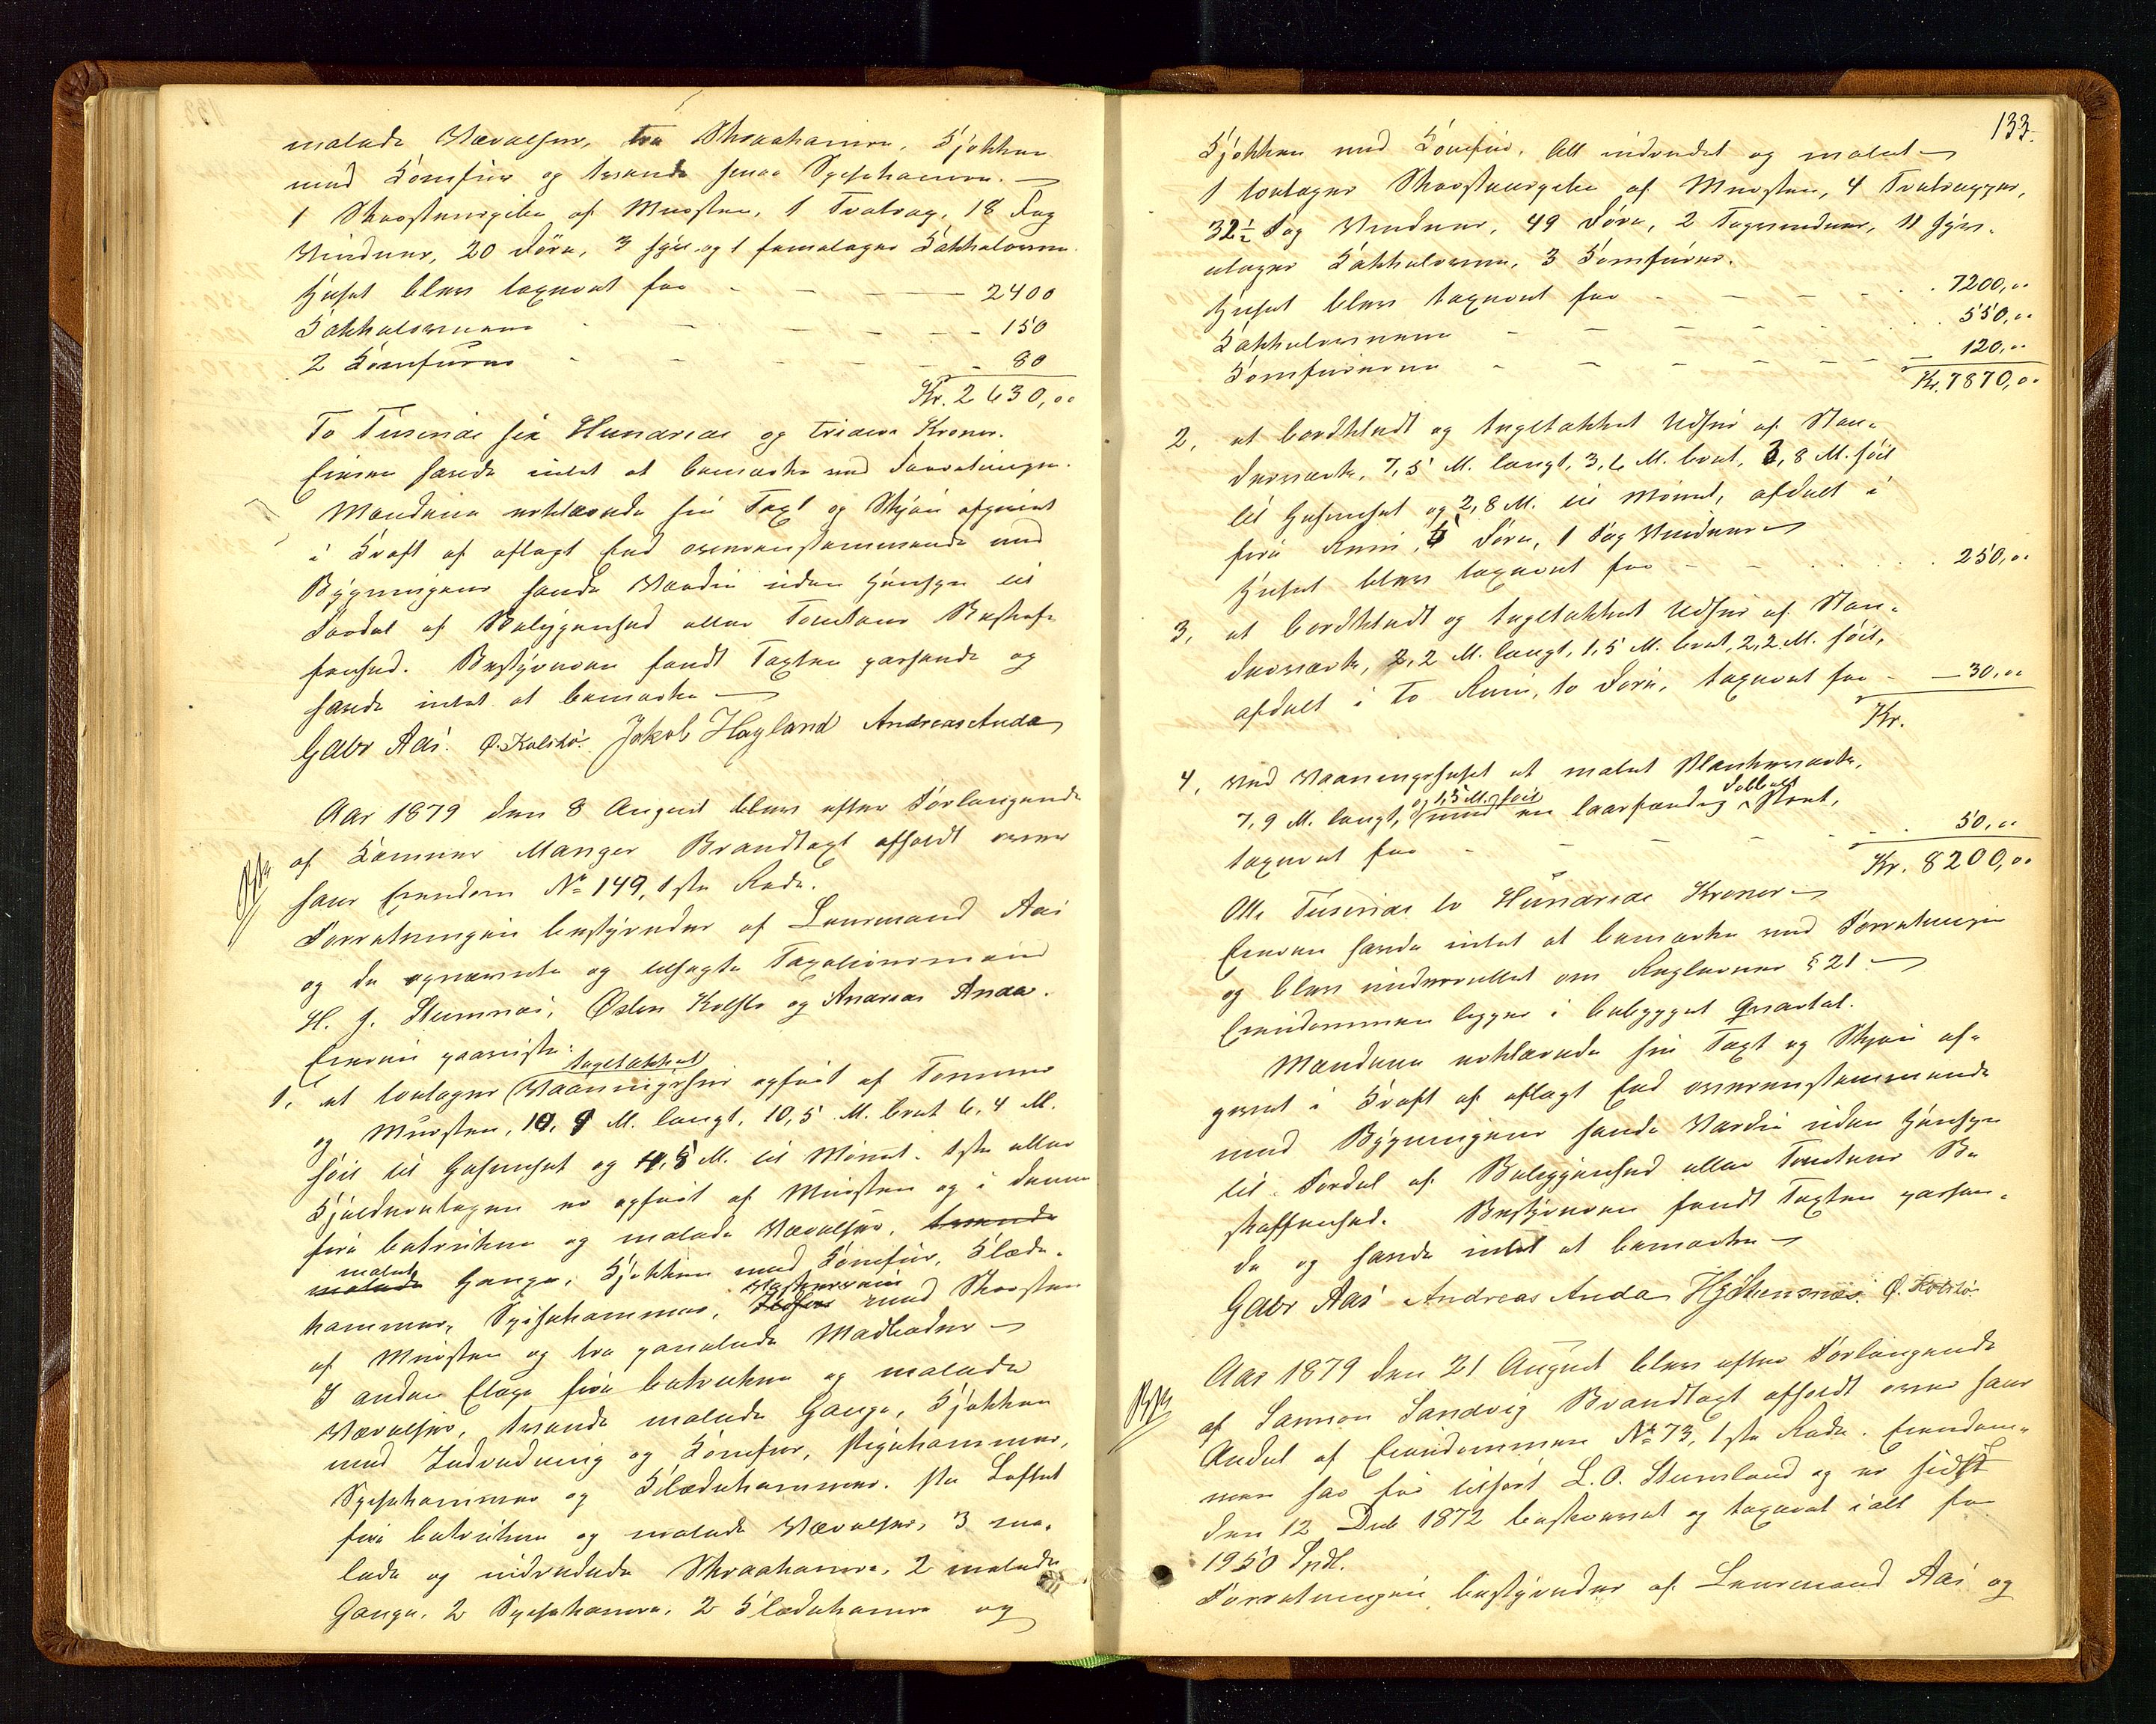 malede Værelser, tre Skraakamre, Kjøkken
med Komfur og tvende smaa Spisekamre. —
1 Skorstenspibe af Mursten, 1 Tratrap, 18 Fag
Vinduer, 20 Døre, 3 fyr- og 1 femetages Kakkelovne.
Huset blev taxeret for - - - 2400
Kakkelovnene - - - 150
2 Komfurer - - - 80
Kr. 2630,00
To Tusinde sex Hundrede og tredive Kroner.
Eieren havde intet at bemærke ved Forretningen.
Mændene erklærede sin Taxt og Skjøn afgivet
i Kraft af aflagt Eed overensstemmende med
Bygningens sande Værdi uden Hensyn til
Fordel af Beliggenhed eller Tomtens Beskaf-
fenhed. Bestyreren fandt Taxten passende og
havde intet at bemærke —
Gabr Aas. Ø. Kolstø. Jakob Hagland Andreas Anda
Aar 1879 den 8 August blev efter Forlangende
af Kæmner Manger Brandtaxt afholdt over
hans Eiendom No 149, 1ste Rode.
Forretningen bestyredes af Lensmand Aas
og de opnævnte og tilsagte Taxationsmænd
H. J. Stensnæs, Østen Kolstø og Andreas Anda.
Eieren paaviste:
1, et toetages tagetækket Vaaningshus opført af Tømmer
og Mursten, 10,9 M. langt, 10,5 M. bredt 6,4 M.
høit til Gesimset og 4,8 M. til Mønet. 1ste eller
Kjelderetagen er opført af Mursten og i denne
fire betrukne og malede Værelser, tvende
malede malet Gange, Kjøkken med Komfur, Klæde-
kammer, Spisekammer, Vaskerum med Skorsten
af Mursten og tre panelede Madboder —
I anden Etage fire betrukne og malede
Værelser, tvende malede Gange, Kjøkken
med Indredning og Komfur, Pigekammer,
Spisekammer og Klædekammer. Paa Loftet
fire betrukne og malede Værelser, 3 ma-
lede og indredede Skraakamre, 2 malede
Gange, 2 Spisekamre, 2 Klædekamre og
133.
Kjøkken med Komfur. Alt indredet og malet —
1 toetages Skorstenspibe af Mursten, 4 Tratrapper,
32½ Fag Vinduer, 49 Døre, 2 Tagvinduer, 11 fyr-
etages Kakkelovne, 3 Komfurer.
Huset blev taxeret for - - - 7200,00
Kakkelovnene - - - 550,00
Komfurerne - - - 120,00
Kr. 7870,00
2, et bordklædt og tagetækket Udhus af Stan-
derværk, 7,5 M. langt, 3,6 M. bredt, 3,8 M. høit
til Gesimset og 2,8 M. til Mønet, afdelt i
fire Rum, 5 Døre, 1 Fag Vinduer —
Huset blev taxeret for - - - 250,00
3, et bordklædt og tagetækket Udhus af Stan-
derværk, 2,2 M. langt, 1,5 M. bredt, 2,2 M. høit,
afdelt i to Rum, to Døre, taxeret for - 30,00
Kr.
4, ved Vaaningshuset et malet Plankeværk,
7,9 M. langt, og 1,5 M. høit med en laasfærdig dobbelt Port,
taxeret for - - - 50,00
Kr. 8200,00
Otte Tusinde to Hundrede Kroner —
Eieren havde intet at bemærke ved Forretningen
og blev underrettet om Reglernes § 21 —
Eiendommen ligger i bebygget Qvartal.
Mændene erklærede sin Taxt og Skjøn af-
givet i Kraft af aflagt Eed overensstemmende
med Bygningens sande Værdi uden Hensyn
til Fordel af Beliggenhed eller Tomtens Be-
skaffenhed. Bestyreren fandt Taxten passen-
de og havde intet at bemærke —
Gabr Aas Andreas Anda HJStensnæs. Ø. Kolstø.
Aar 1879 den 21 August blev efter Forlangende
af Samson Sandvig Brandtaxt afholdt over hans
Andel af Eiendommen No 73, 1ste Rode. Eiendom-
men har før tilhørt L. O. Stumsland og er sidst
den 12 Decb 1872 beskrevet og taxeret i alt for
1950 Spdl.
Forretningen bestyredes af Lensmand Aas og